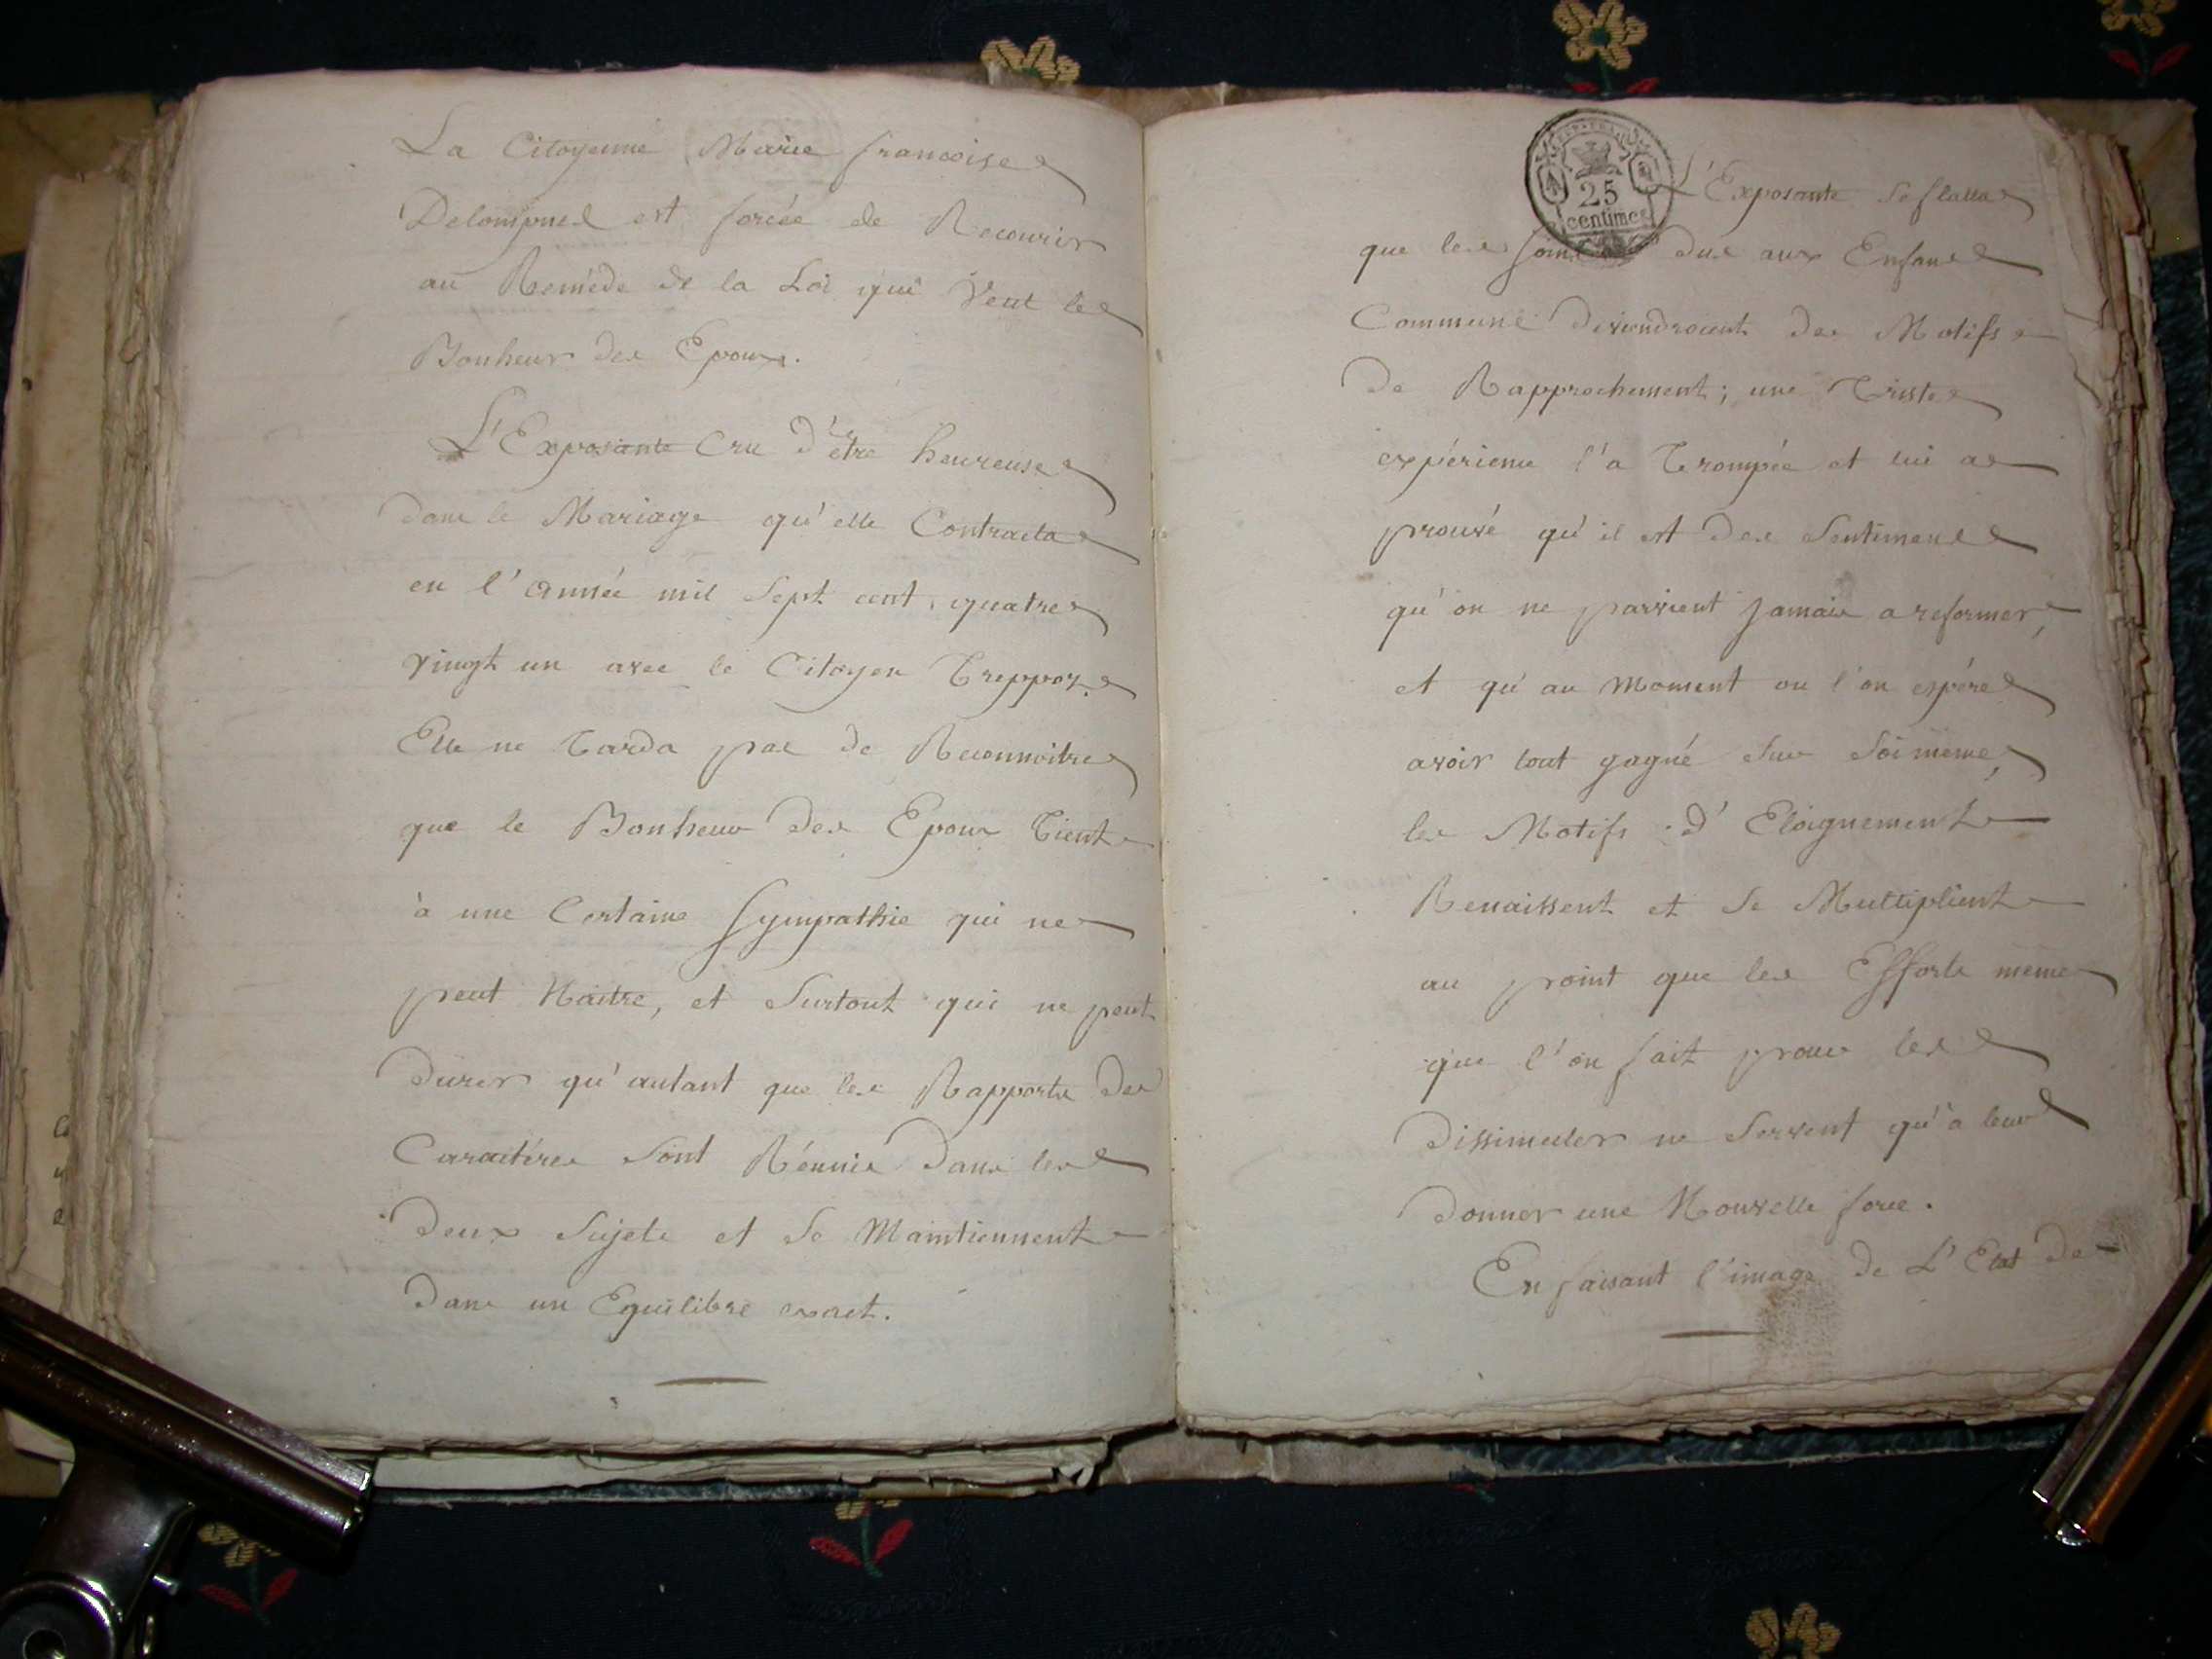 La Citoyenne Marie francoise
est forcée de Recourir
au Remède de la Loi qui Veut le
Bonheur des Epoux.
L'Exposante Cru d'être heureuse
dans le Mariage qu'elle Contracta
en l'année mil Sept cent quatre
vingt un avec le Citoyen Treppoz.
Elle ne Tarda pas de Reconnoitre
que le Bonheur des Epoux Tient
à une Certaine Sympathie qui ne
peut Naitre, et Surtout qui ne peut
durer qu'autant que les Rapports des
Caractéres Sont Réunis dans les
deux Sujets et Se Maintiennent
dans un Equilibre exact.
25
centimes
L'Exposante Se flatta
que les Soins dus aux Enfans
Communs deviendroient des Motifs
de Rapprochement; une Triste
expérience l'a Trompée et lui a
prouvé qu'il est des Sentimens
qu'on ne parvient Jamais a reformer,
et qu'au Moment ou l'on espére
avoir tout gagné Sur Soi même,
les Motifs d'Eloignement
Renaissent et Se Multiplient
au point que les Efforts même
que l'on fait pour les
dissimuler ne Servent qu'à leur
donner une Nouvelle force.
En faisant l'image de L'Etat de